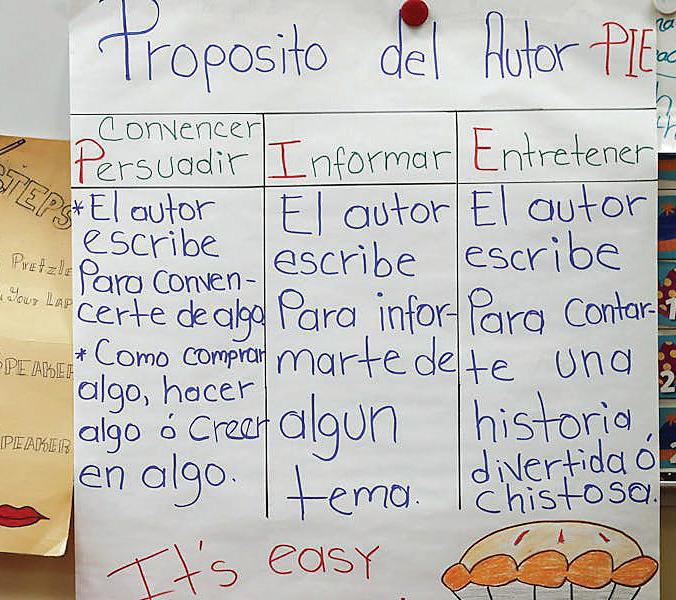 Proposito del Autor PIE
Convencer
Persuadir
Informar
Entretener
*El autor
escribe
Para conven-
certe de algo
*Como comprar
algo, hacer
algo ó Creer
en algo.
El autor
escribe
Para infor-
marte de
algun
tema.
El autor
escribe
Para contar-
te una
historia
divertida ó
chistosa.
It's easy
STEPS
Pretzle
Your LAP
SPEAKER
SPEAKER
1
2